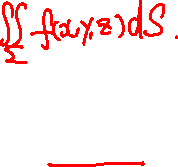 ∬_Σ f(x,y,z)dS.